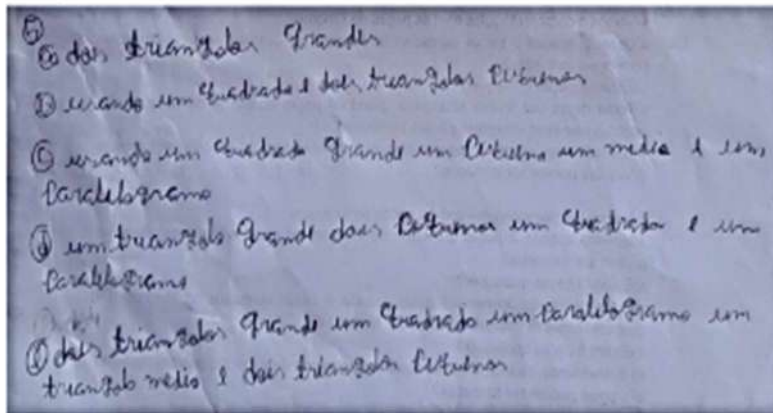 5
a dois triangolos grandes
b usando um quadrado e dois triangolos pequenos
c usando um quadrado grande um pequeno um medio e um
paralelogramo
d um triangolo grande dois pequenos um quadrado e um
paralelogramo
e dois triangolos grande um quadrado um paralelogramo um
triangolo medio e dois triangolos pequenos